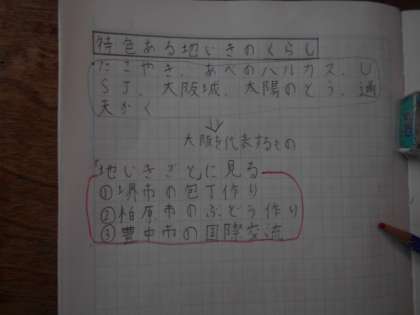 特色ある地いきのくらし
たこやき、あべのハルカス、U
SJ、大阪城、太陽のとう、通
天かく
↓
大阪を代表するもの
「地いきごと」に見る
①堺市の包丁作り
②柏原市のぶどう作り
③豊中市の国際交流